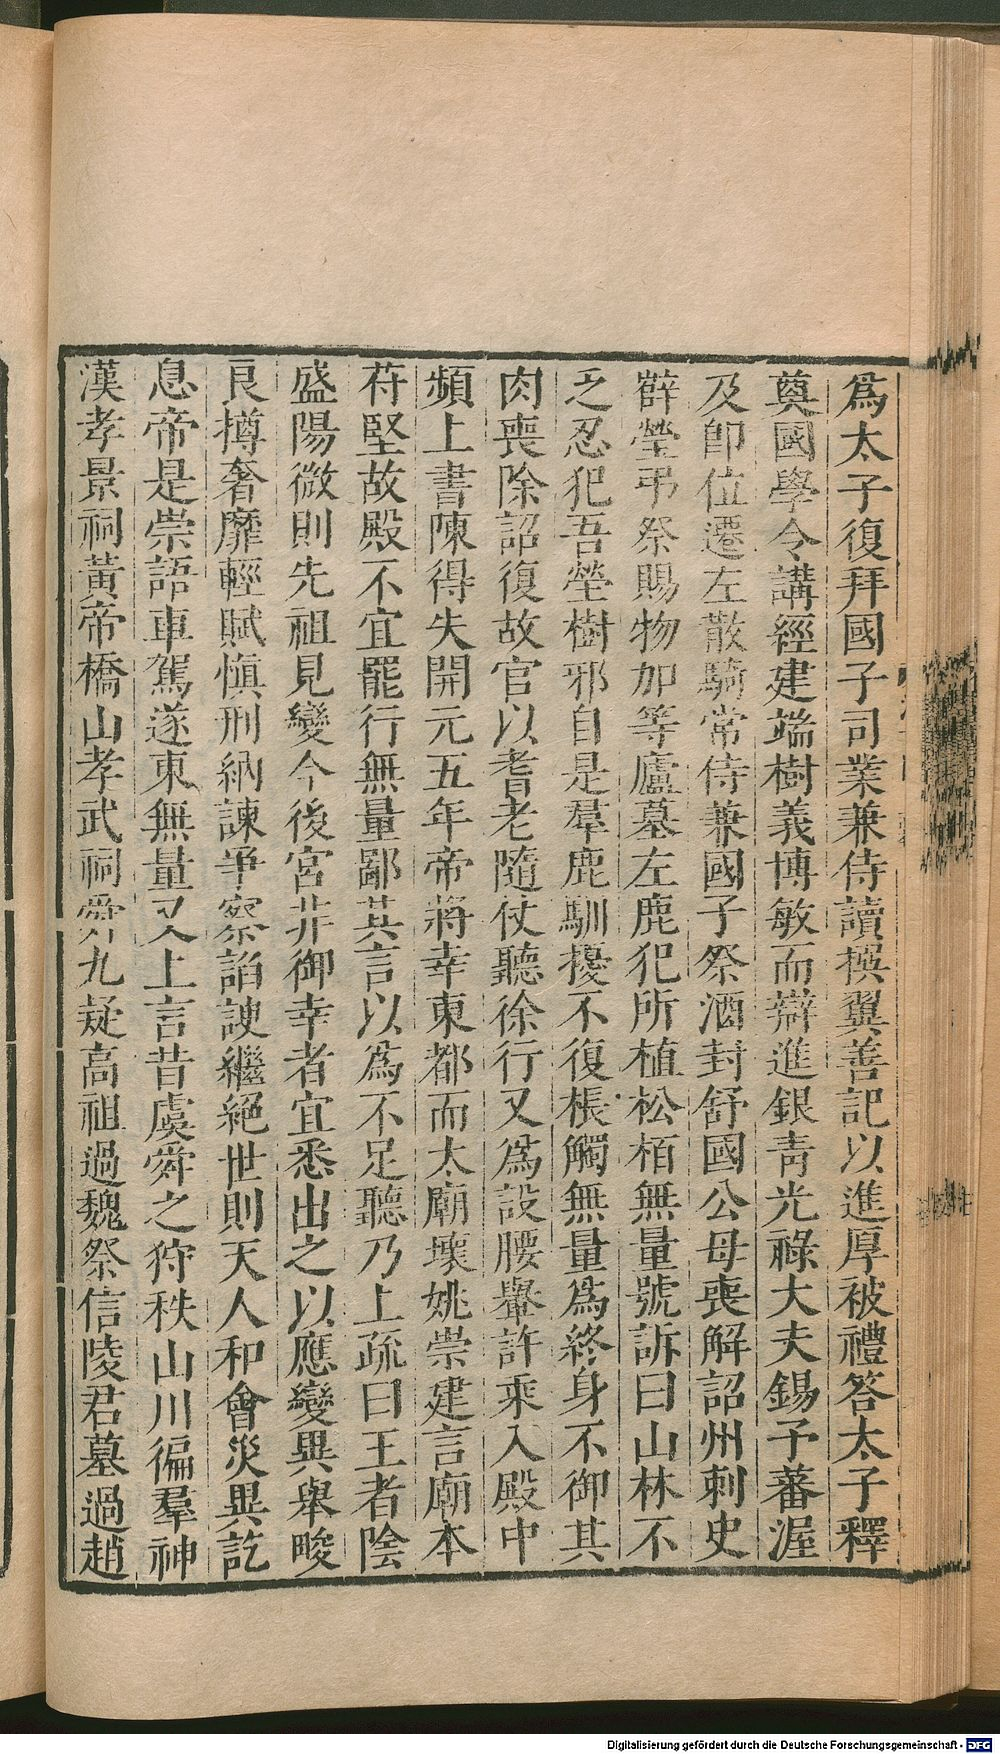 爲太子復拜國子司業兼侍讀撰翼善記以進厚被禮答太子釋
奠國學令講經建端樹義博敏而辯進銀靑光祿大夫錫予蕃渥
及卽位遷左散騎常侍兼國子祭酒封舒國公母喪解詔州刺史
薛瑩弔祭賜物加等廬墓左鹿犯所植松栢無量號訴曰山林不
乏忍犯吾塋樹邪自是羣鹿馴擾不復棖觸無量爲終身不御其
肉喪除詔復故官以耆老隨仗聽徐行又爲設腰轝許乘入殿中
頻上書陳得失開元五年帝將幸東都而太廟壞姚崇建言廟本
苻堅故殿不宜罷行無量鄙其言以爲不足聽乃上疏曰王者陰
盛陽微則先祖見變今後宮非御幸者宜悉出之以應變異舉畯
良撙奢靡輕賦愼刑納諫爭察諂諛繼絕世則天人和會災異訖
息帝是崇語車駕遂東無量又上言昔虞舜之狩秩山川徧羣神
漢孝景祠黃帝橋山孝武祠舜九疑高祖過魏祭信陵君墓過趙
Digitalisierung gefördert durch die Deutsche Forschungsgemeinschaft - DFG